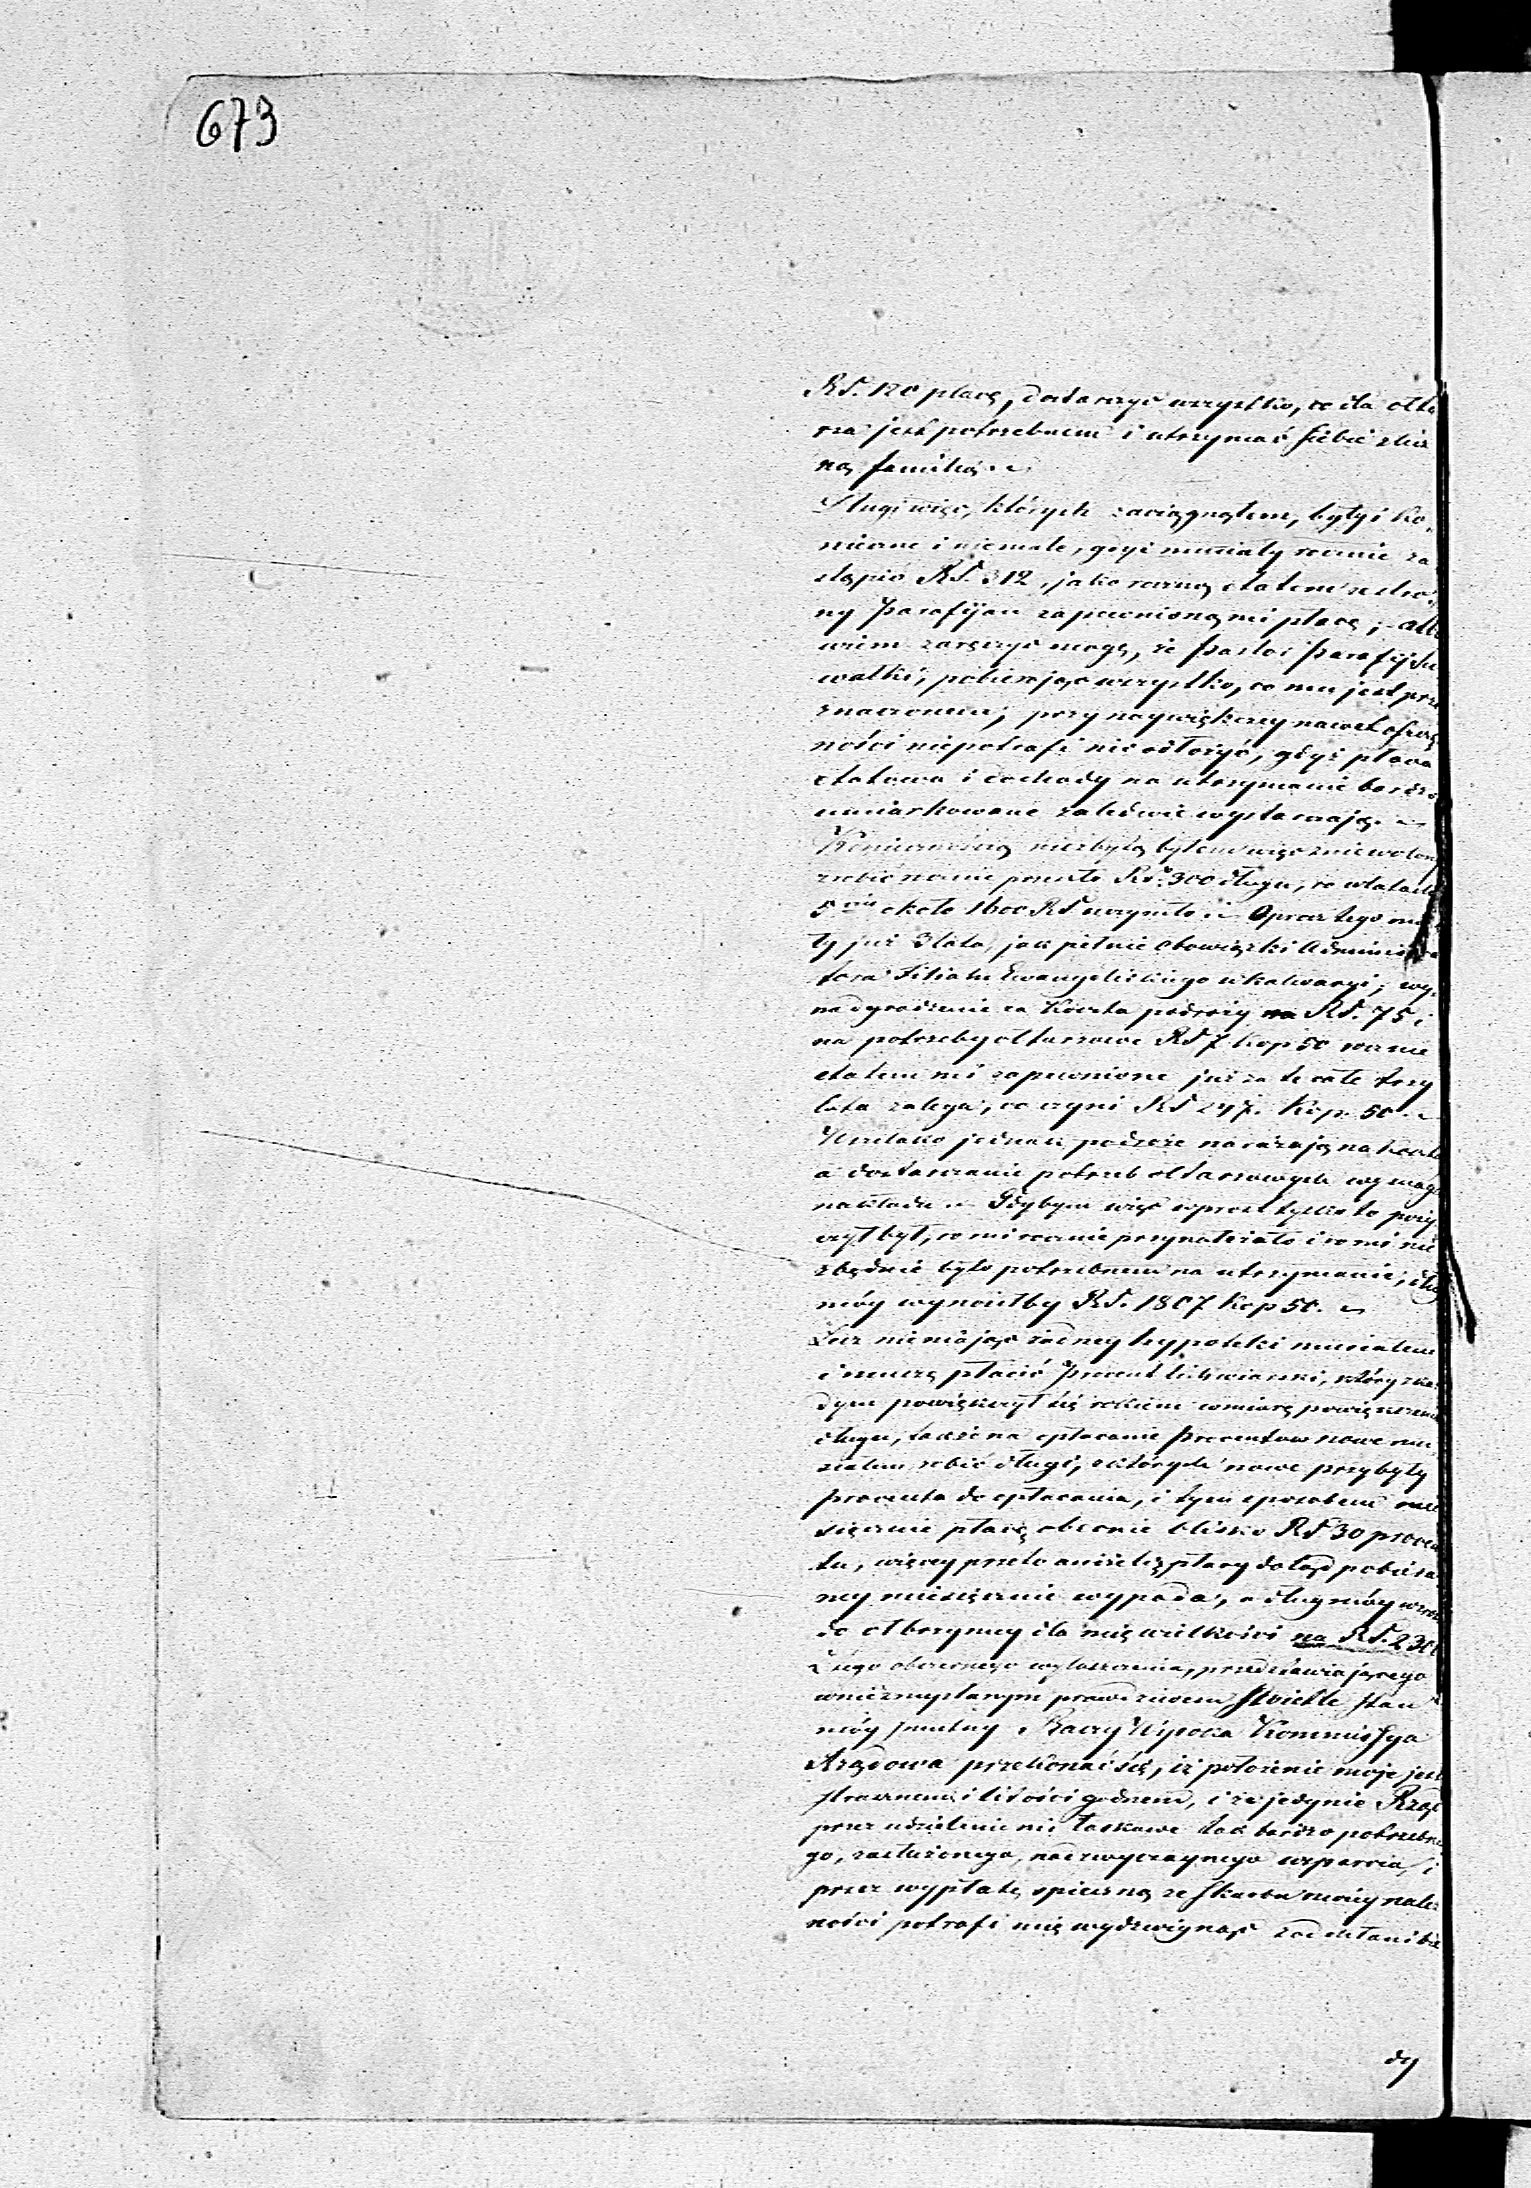 673
RS. 120 płacę, dostarczyć wszystko, co dla ołta
rza jest potrzebnem i utrzymać siebie z licz
ną familią.
Długi więc, których zaciągnąłem, były i ko,
nieczne i niemałe, gdyż musiały rocznie za
stąpić RS. 312, jako roczną etatem ze stro,
ny Parafijan zapewnioną mi płacę;
wiem zaręczyć mogę, że Pastor Parafij Su
wałki, pobierając wszystko, co mu jest prze
znaczonem, przy największey nawet oszczę
ności niepotrafi nic odłożyć, gdyż płaca
etatowa i dochody na utrzymanie bardzo
umiarkowane zaledwie wystarczają.
Koniecznością niezbytą byłem więc zniewolony
robić rocznie przeszło RS. 300 długu, co w latach
5ciu około 1600 RS uczyniło. Oprocz tego
ty już 3 lata, jak pełnię obowiązki Administra
tora Filiału Ewangelickiego w Kalwaryi; wy,
nadgrodzenie za koszta podroży na RS. 75 i
na potrzeby ołtarzowe RS 7 kop 50 rocznie
etatem mi zapewnione już za te całe trzy
lata zalega, co czyni RS 247. Kop. 50.
Wszelako jednak podroże narażają na koszta
a dostarczanie potrzeb ołtarzowych wymaga
nakładu. Gdybym więc oprocz tylko to poży
czył był, co mi rocznie przynależało i co mi nie
zbędnie było potrzebnem na utrzymanie, dług
móy wynosiłby RS. 1807 kop 50.
Lecz niemając żadney hypoteki musiałem
i muszę płacić Procent lichwiarski, który z każ
dym powiększył się rokiem w miarę powiększenia
długu, także na opłacanie Procentow nowe mu,
siałem robić długi, z których nowe przybyły
procenta do opłacania, i tym sposobem mie
sięcznie płacę obecnie blisko RS 30 procen
tu, więcey przeto aniżeli z płacy dotąd pobiera
ney miesięcznie wypada, a dług móy wzrósł
do olbrzymey dla mię wielkości na RS. 230
Z tego obszernego wyłuszczenia, przedstawiającego
w niezmyślanym prawdziwem świetle stan
móy smutny Raczy Wysoka Kommissya
Rządowa przekonać się, iż położenie moje jest
strasznem i litości godnem, i że jedynie Rząd
przez udzielenie mi łaskawe tak bardzo potrzebne
go, zasłużonego, nadzwyczaynego wsparcia, i
przez wypłatę spieszną ze Skarbu moiey należ
ności potrafi mię wydzwignąć
dy